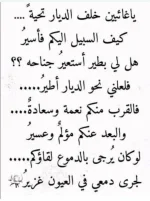 ياغائبين خلف الديار تحيةً ....
كيف السبيل اليكم فأسيرُ
هل لي بطير أستعيرُ جناحه ؟؟
فلعلني نحو الديار أطيرُ.....
فالقرب منكم نعمة وسعادةٌ....
والبعد عنكم مؤلمٌ وعسيرُ
لوكان يُرجى بالدموع لقاؤكم.....
لجرى دمعي في العيون غزيرُ